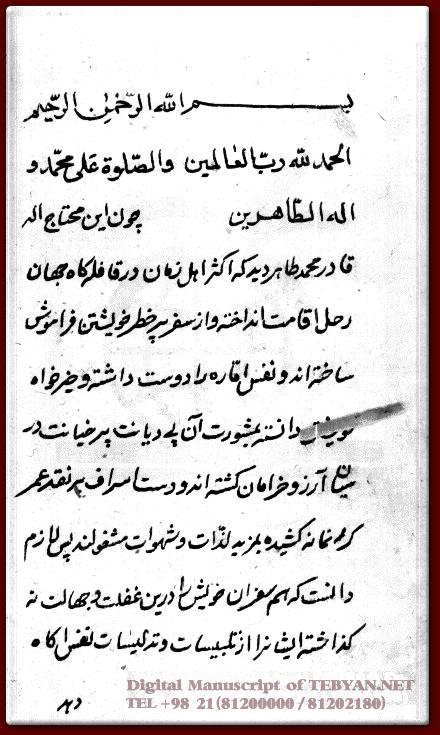 بسم الله الرحمن الرحیم
الحمد لله ربّ العالمین والصّلوة علی محمّد و
اله الطّاهرین چون این محتاج اله
قادر محمد طاهر دید که اکثر اهل زمان در قافله کاه جهان
رحل اقامت انداخته و از سفر پر خطر خویشتن فراموش
ساخته اند و نفس امّاره را دوست داشته و خیر خواه
دانسته بمشورت آن بی دیانت پر خیانت در
آرزو خرامان کشته اند و دست اسراف بر نقد عمر
کرانمایه کشیده بمزید لذّات و شهوات مشغولند پس لازم
دانست که هم سفران خویش را درین غفلت و جهالت نه
کذاشته ایشانرا از تلبیسات و تدلیسات نفس اکاه
دهد
Digital Manuscript of TEBYAN.NET
TEL +98 21(81200000 / 81202180)